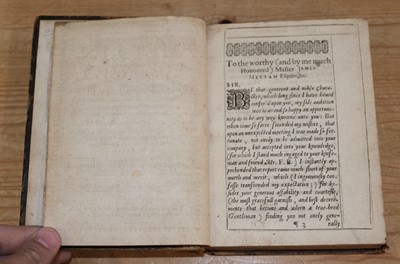 To the worthy (and by me much
Honoured) Master JAMES
MEYRAM Esquire, &c.
SIR,
BY that generous and noble Chara-
cter, which long since I have heard
confer'd upon you, my sole ambition
was to attend so happy an opportu-
nity as to be any way knowne unto you: But
when time so farre seconded my wishes, that
upon an unexpected meeting I was made so for-
tunate, not onely to be admitted into your
company, but accepted into your knowledg,
(for which I stand much engaged to your kinse-
man and friend Mr. F. ) I instantly ap-
prehended that report came much short of your
worth and merit, which (I ingenuously con-
fesse transcended my expectation;) For be-
sides your generous affability and courtesie,
(the most gracefull garnish, and best decore-
ments that become and adorn a true-bred
Gentleman) finding you not onely gene-
¶ 3 rally